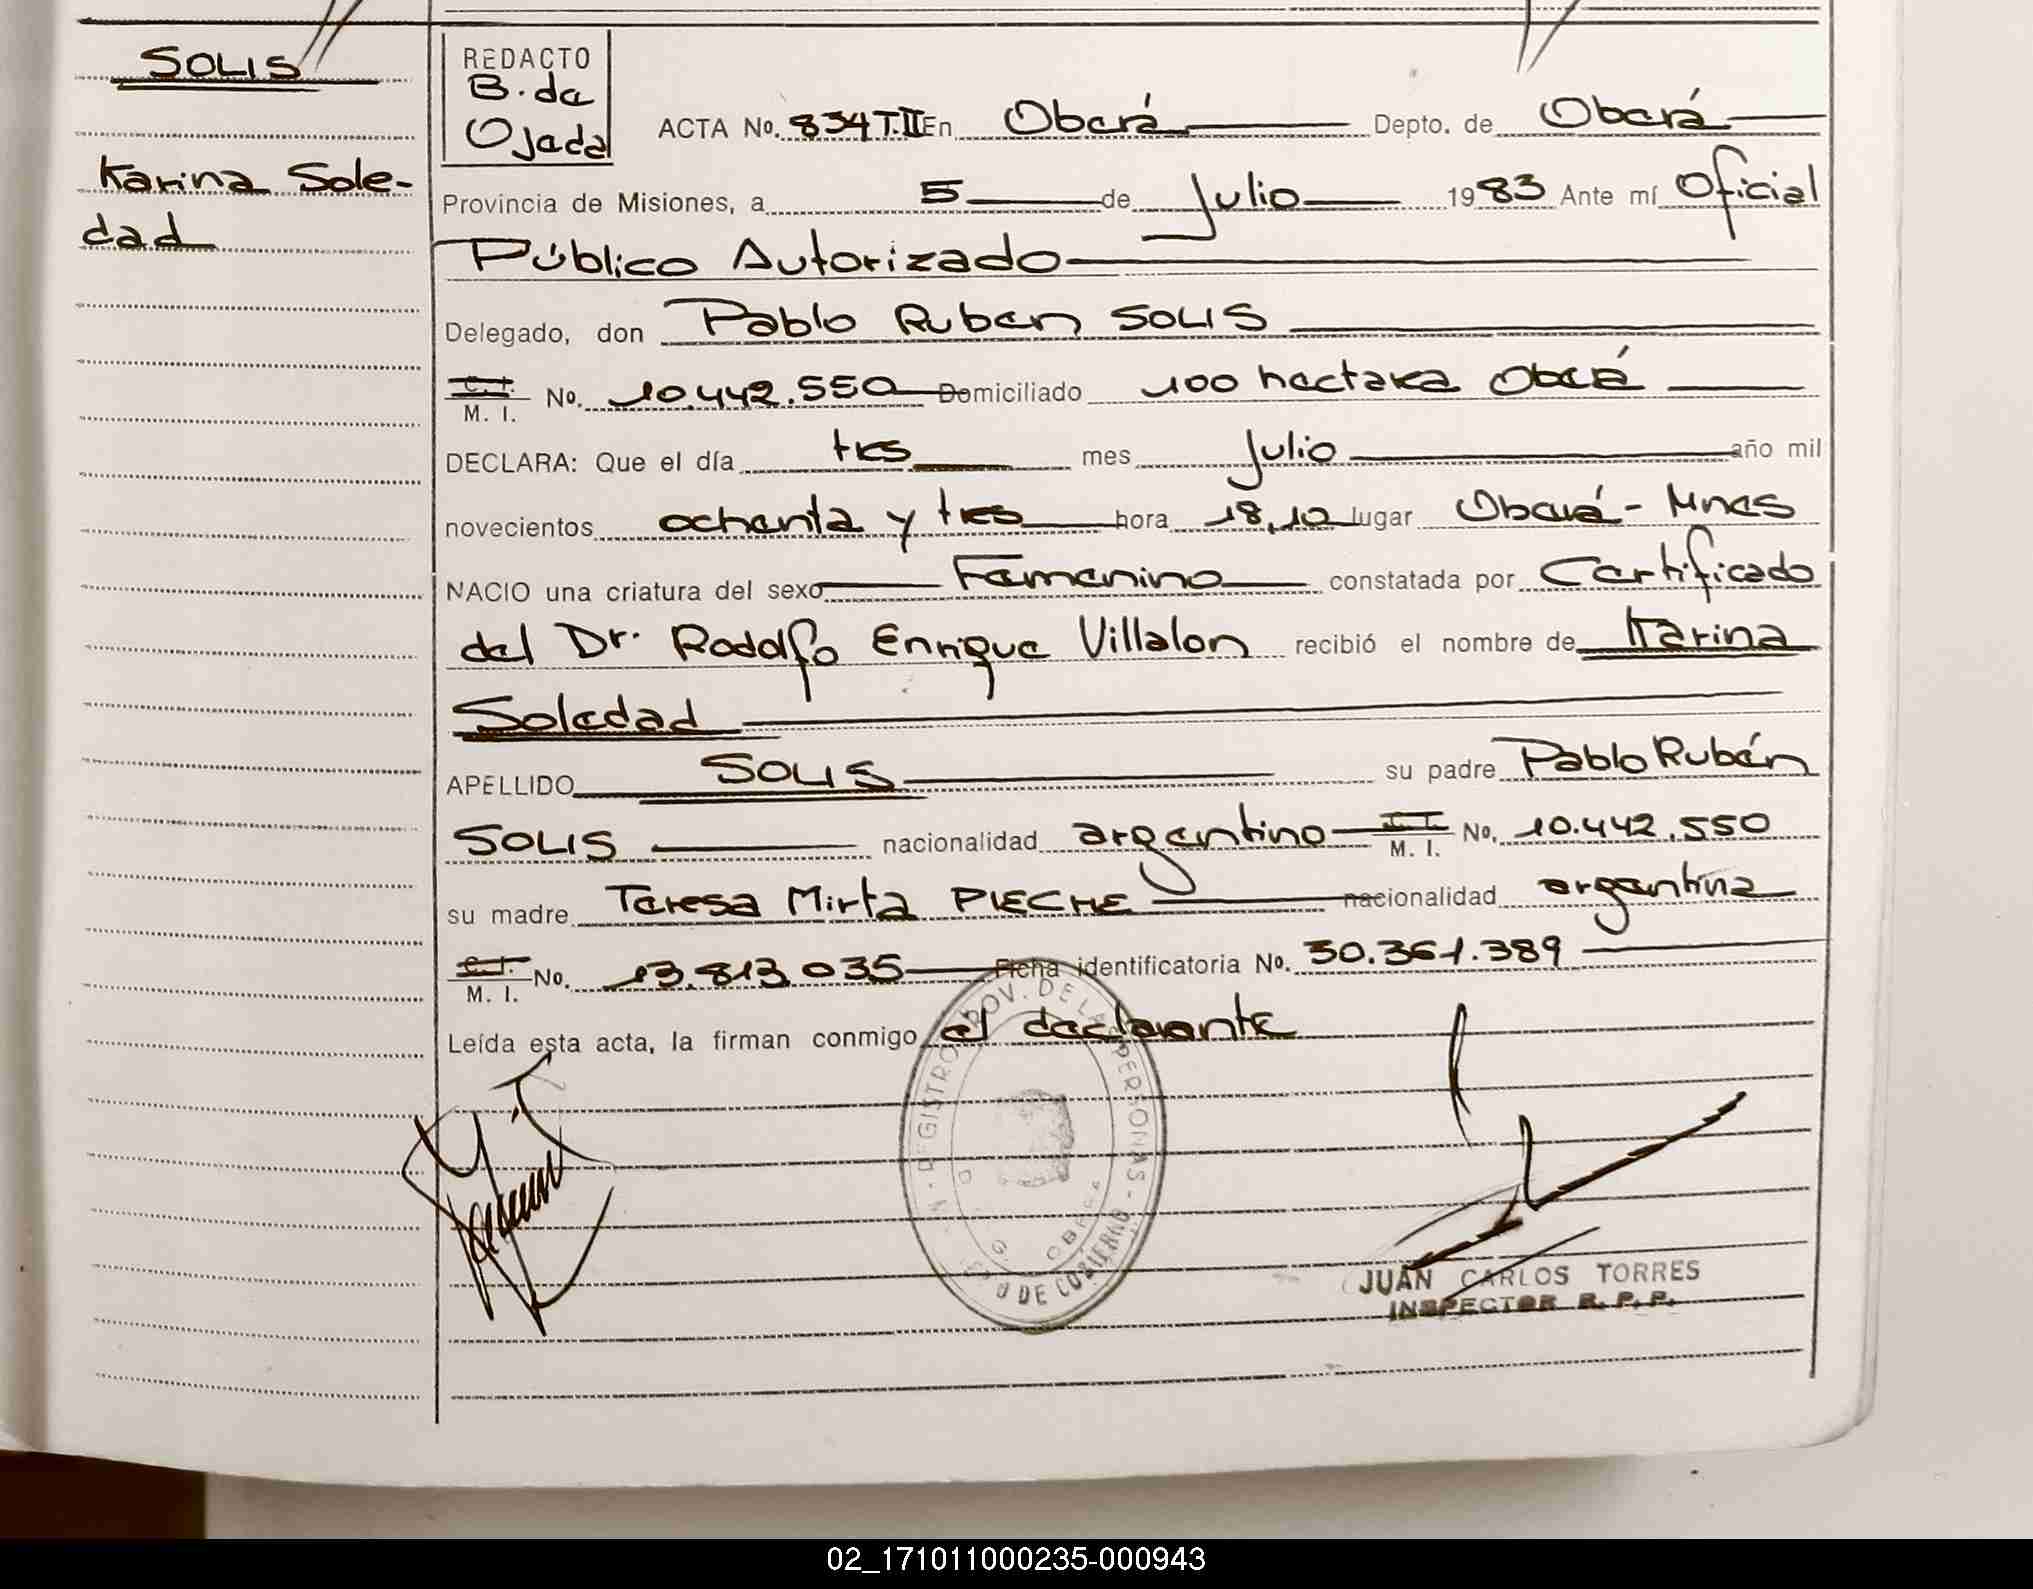 SOLIS
Karina Sole-
dad
REDACTO
B. de
Ojeda
ACTA No. 834 T.II En Oberá Depto. de Oberá
Provincia de Misiones, a 5 de Julio 1983 Ante mí Oficial
Público Autorizado
Delegado, don Pablo Ruben SOLIS
C. I.
M. I. No. 10.442.550 Domiciliado 100 hectarea Oberá
DECLARA: Que el día tres mes Julio año mil
novecientos ochenta y tres hora 18,10 lugar Oberá - Mnes
NACIO una criatura del sexo Femenino constatada por Certificado
del Dr. Rodolfo Enrique Villalon recibió el nombre de Karina
Soledad
APELLIDO SOLIS su padre Pablo Rubén
SOLIS nacionalidad argentino C. I. M. I. No. 10.442.550
su madre Teresa Mirta PIECHE nacionalidad argentina
C. I.
M. I. No. 13.813.035 Ficha identificatoria No. 30.361.389
Leída esta acta, la firman conmigo el declarante
REGISTRO PROV. DE LAS PERSONAS
OBERA
DE GOBIERNO
JUAN CARLOS TORRES
INSPECTOR R. P. P.
02_171011000235-000943